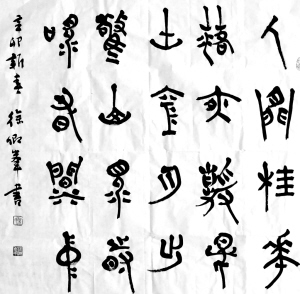 人閒桂華
落夜靜春
山空月出
驚山鳥時
鳴春澗中
辛卯新春 徐卿峯書